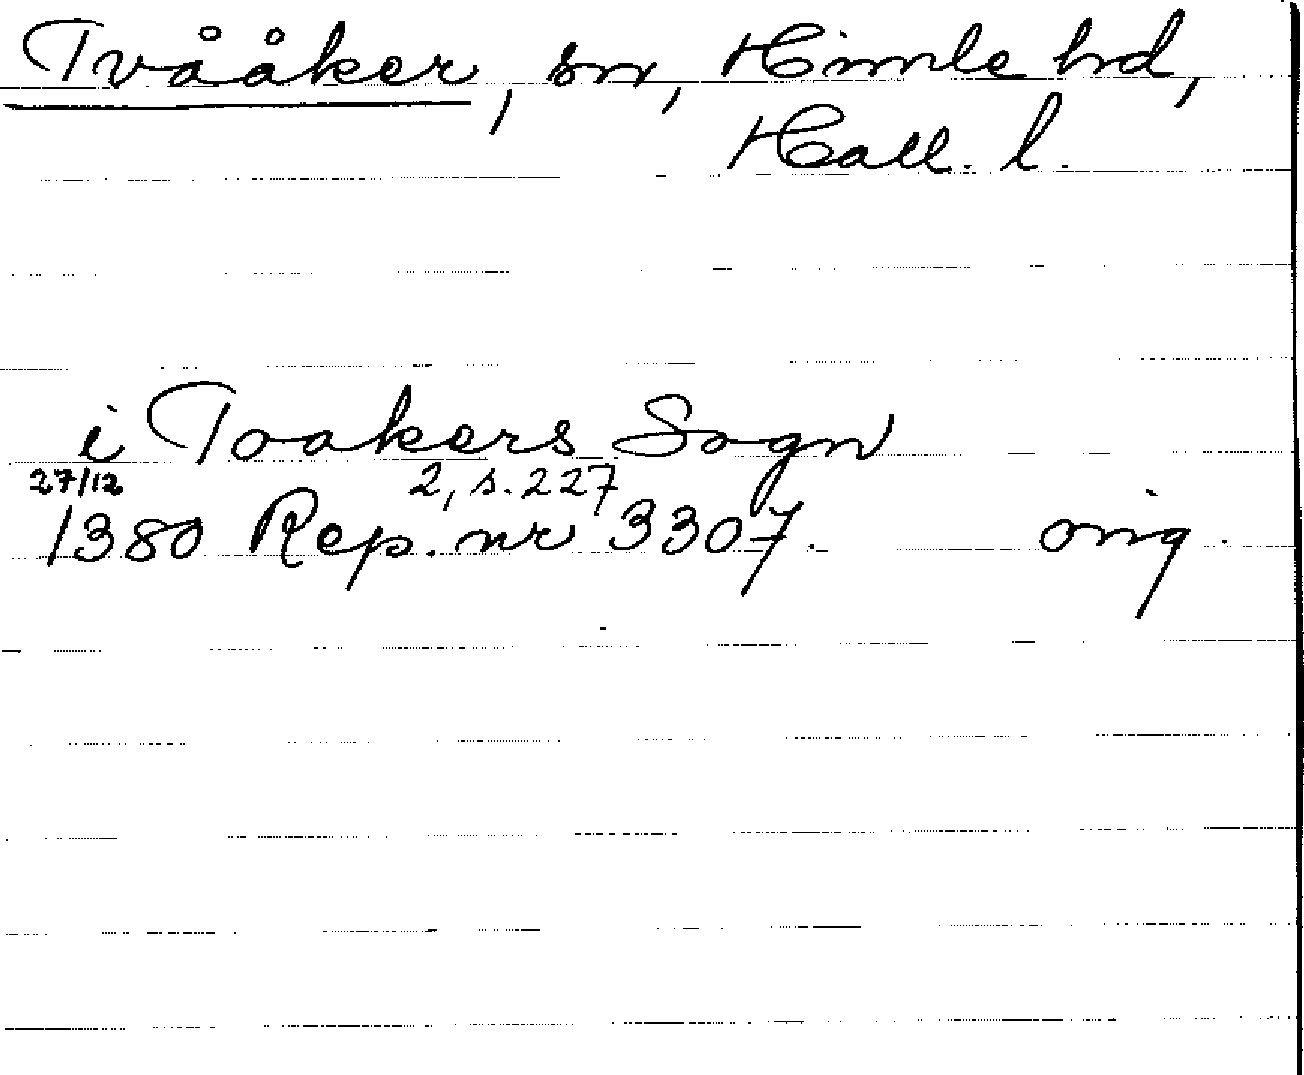 Tvååker, sn, Himle hd,
Hall. l.
i Toakers Sogn
27/12 2, s. 227
1380 Rep. nr 3307. orig.